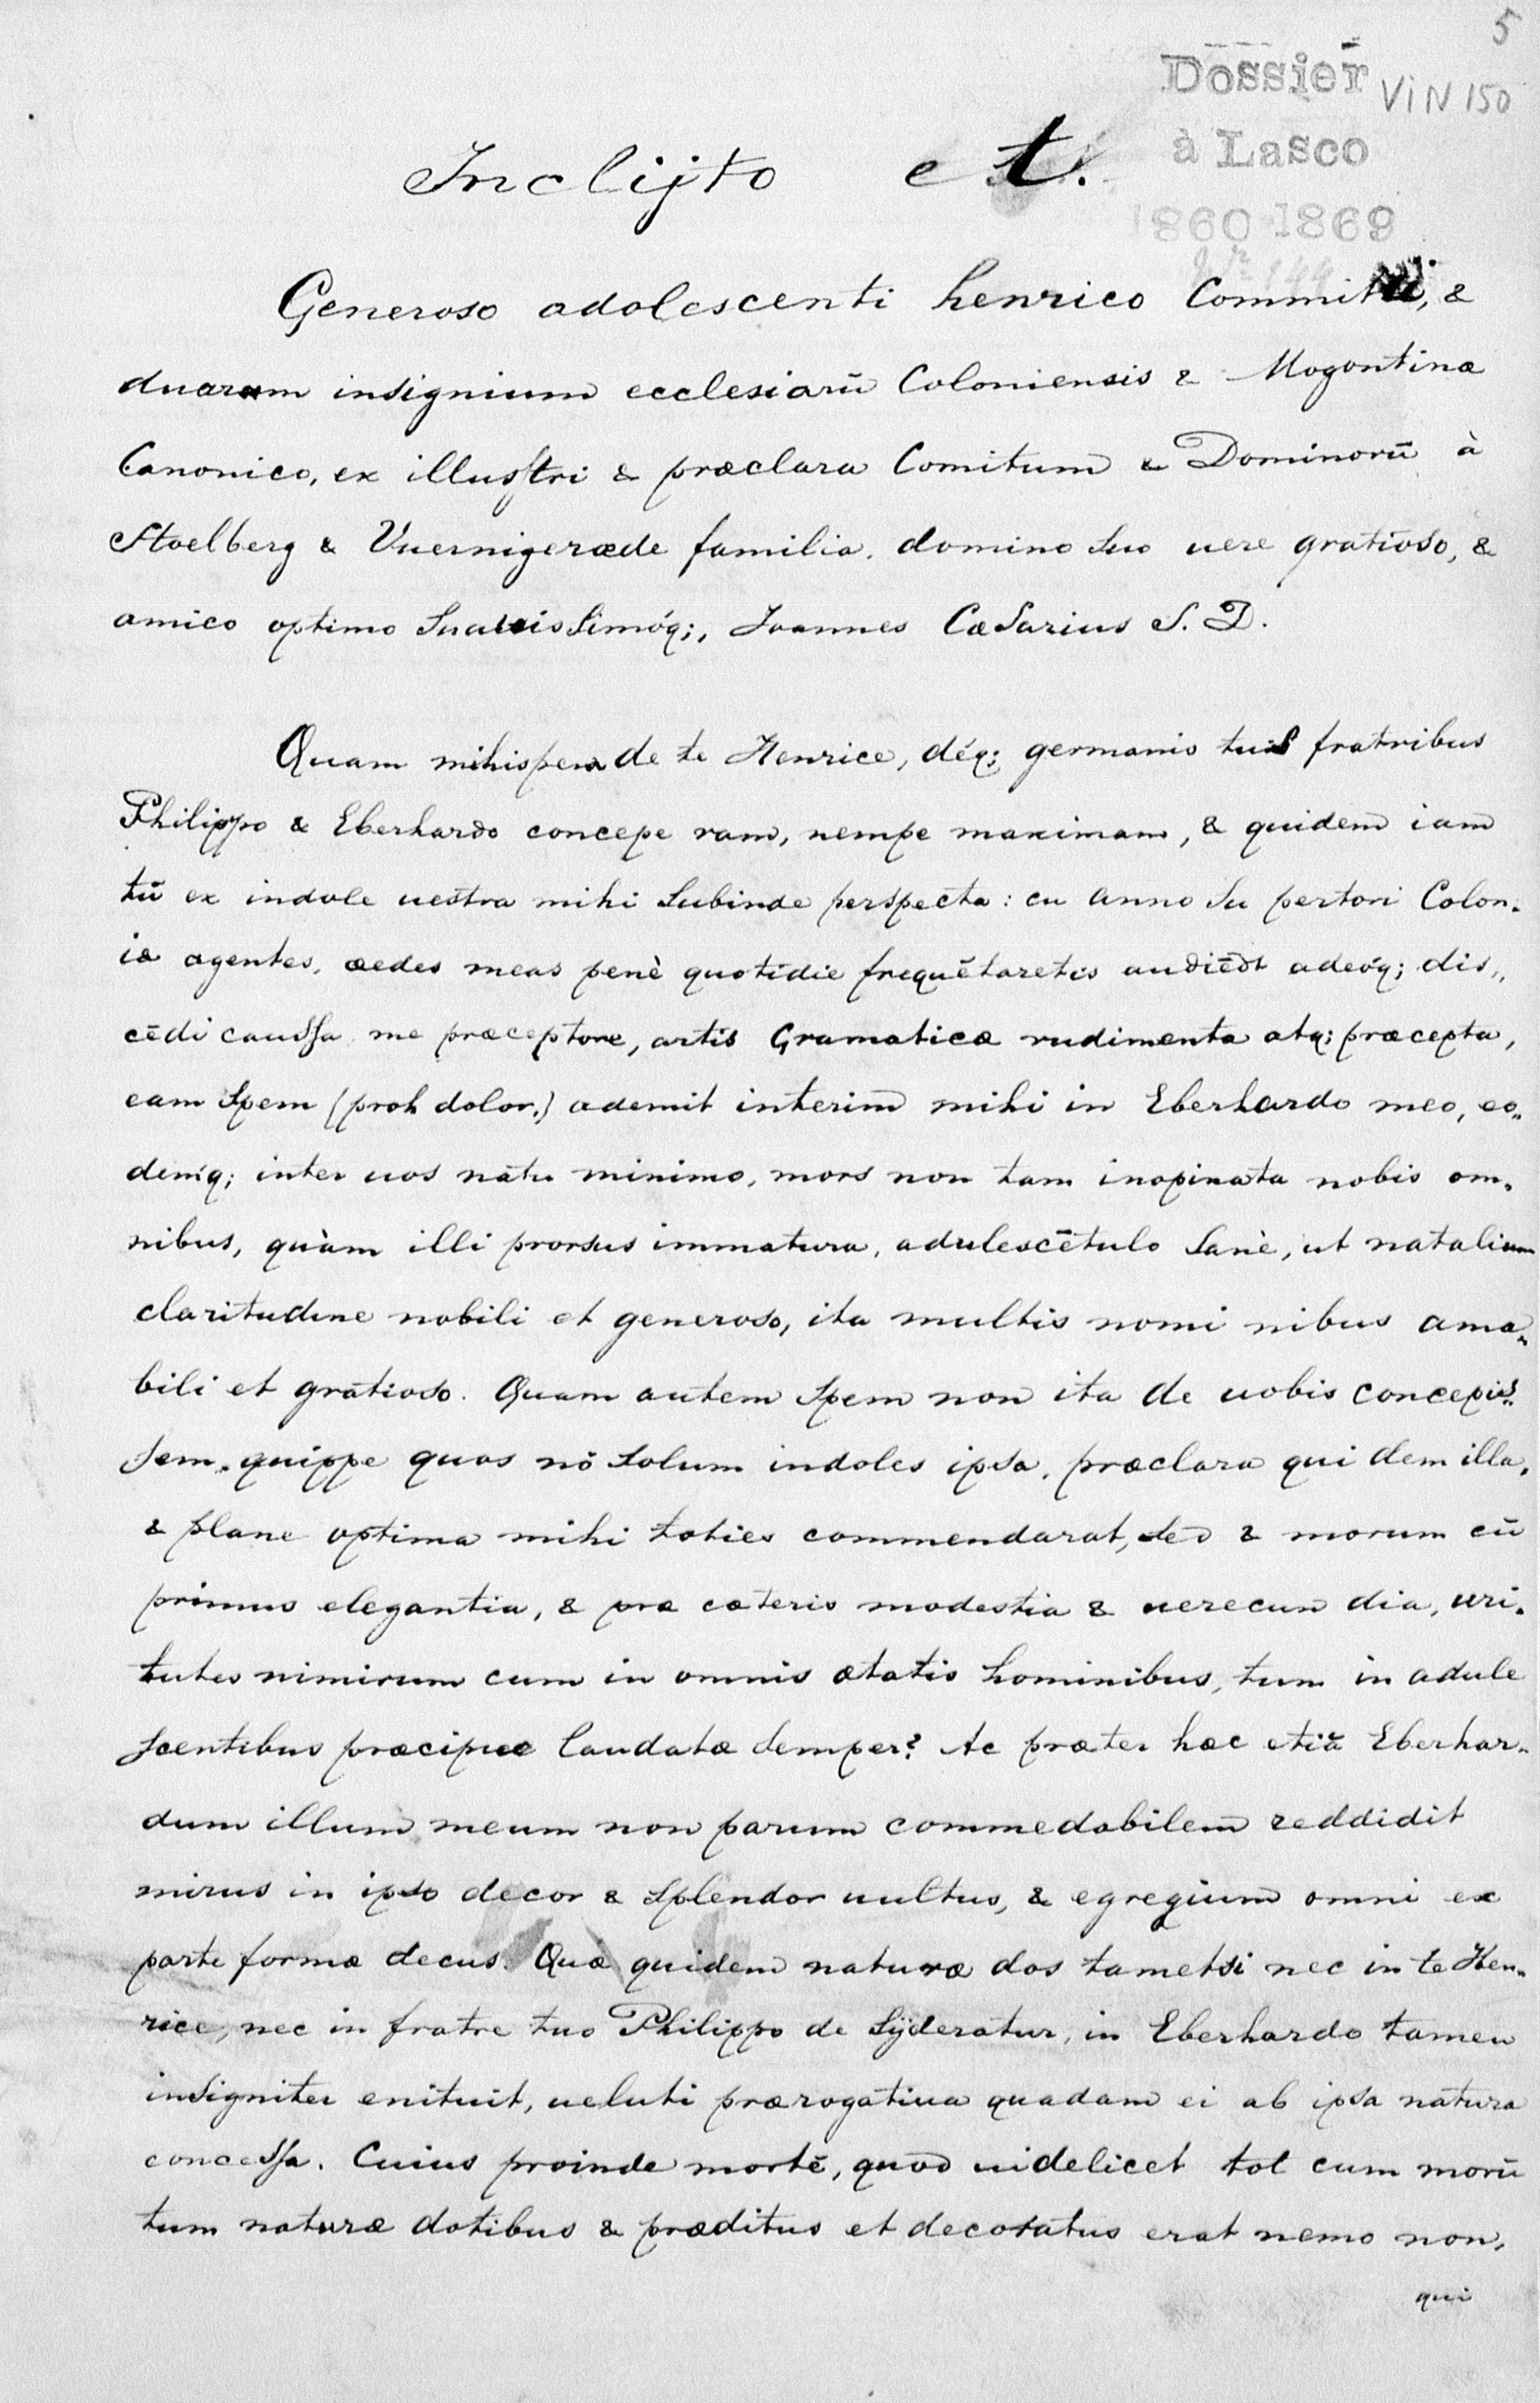 5
Dossier ViN 150
à Lasco
1860-1869
Inclijto et.
Generoso adolescenti henrico &
duarum insignium ecclesiarū Coloniensis & Mogontinæ
Canonico, ex illustri & præclara Comitum & Dominorū à
Stoelberg & Vuernigeræde familia. domino suo uere gratioso, &
amico optimo suauissimóq;, Joannes Cæsarius S. D.
Quam mihi spem de te Henrice, déq; germanis tuis fratribus
Philippo & Eberhardo concepe ram, nempe maximam, & quidem iam
tū ex indole uestra mihi subinde perspecta: cu anno su periori Colon-
iæ agentes, ædes meas penè quotidie frequētaretis audiēdi adeóq; dis„
cēdi caussa me præceptore, artis Gramaticæ rudimenta atq; præcepta,
eam spem (proh dolor.) ademit interim mihi in Eberhardo meo, eo„
demq; inter uos natu minimo, mors non tam inopinata nobis om-
nibus, quàm illi prorsus immatura, adulescētulo sanè, ut natalium
claritudine nobili et generoso, ita multis nomi nibus ama„
bili et gratioso. Quam autem spem non ita de uobis concepis„
sem. quippe quos nō solum indoles ipsa, præclara qui dem illa,
& plane optima mihi toties commendarat, sed & morum cū
primus elegantia, & præ cæteris modestia & uerecun dia, uri-
tutes nimirum cum in omnis ætatis hominibus, tum in adule
scentibus præcipue laudatæ semper? Ac præter hæc etiā Eberhar„
dum illum meum non parum commedabilem reddidit
mirus in ipso decor & splendor uultus, & egregium omni ex
parte formæ decus. Quæ quidem naturæ dos tametsi nec in te Hen„
rice, nec in fratre tuo Philippo de sÿderatur, in Eberhardo tamen
insigniter enituit, ueluti prærogatiua quadam ei ab ipsa natura
concessa. Cuius proinde mortē, quod uidelicet tot cum morū
tum naturæ dotibus & præditus et decoratus erat nemo non,
qui